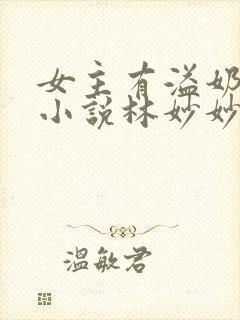 女主有溢奶
小说林妙妙
温敏君